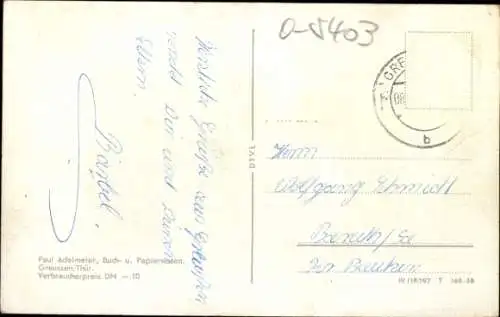 O-5403
Herzliche Grüße aus Greußen
sendet Dir und Deinen
Eltern
Bärbel.
Paul Adelmeier, Buch- u. Papierwaren.
Greussen/Thür.
Verbraucherpreis DM —.10
DTVL
GRE
b
Herrn
Wolfgang Schmidt
IV/18/397 T